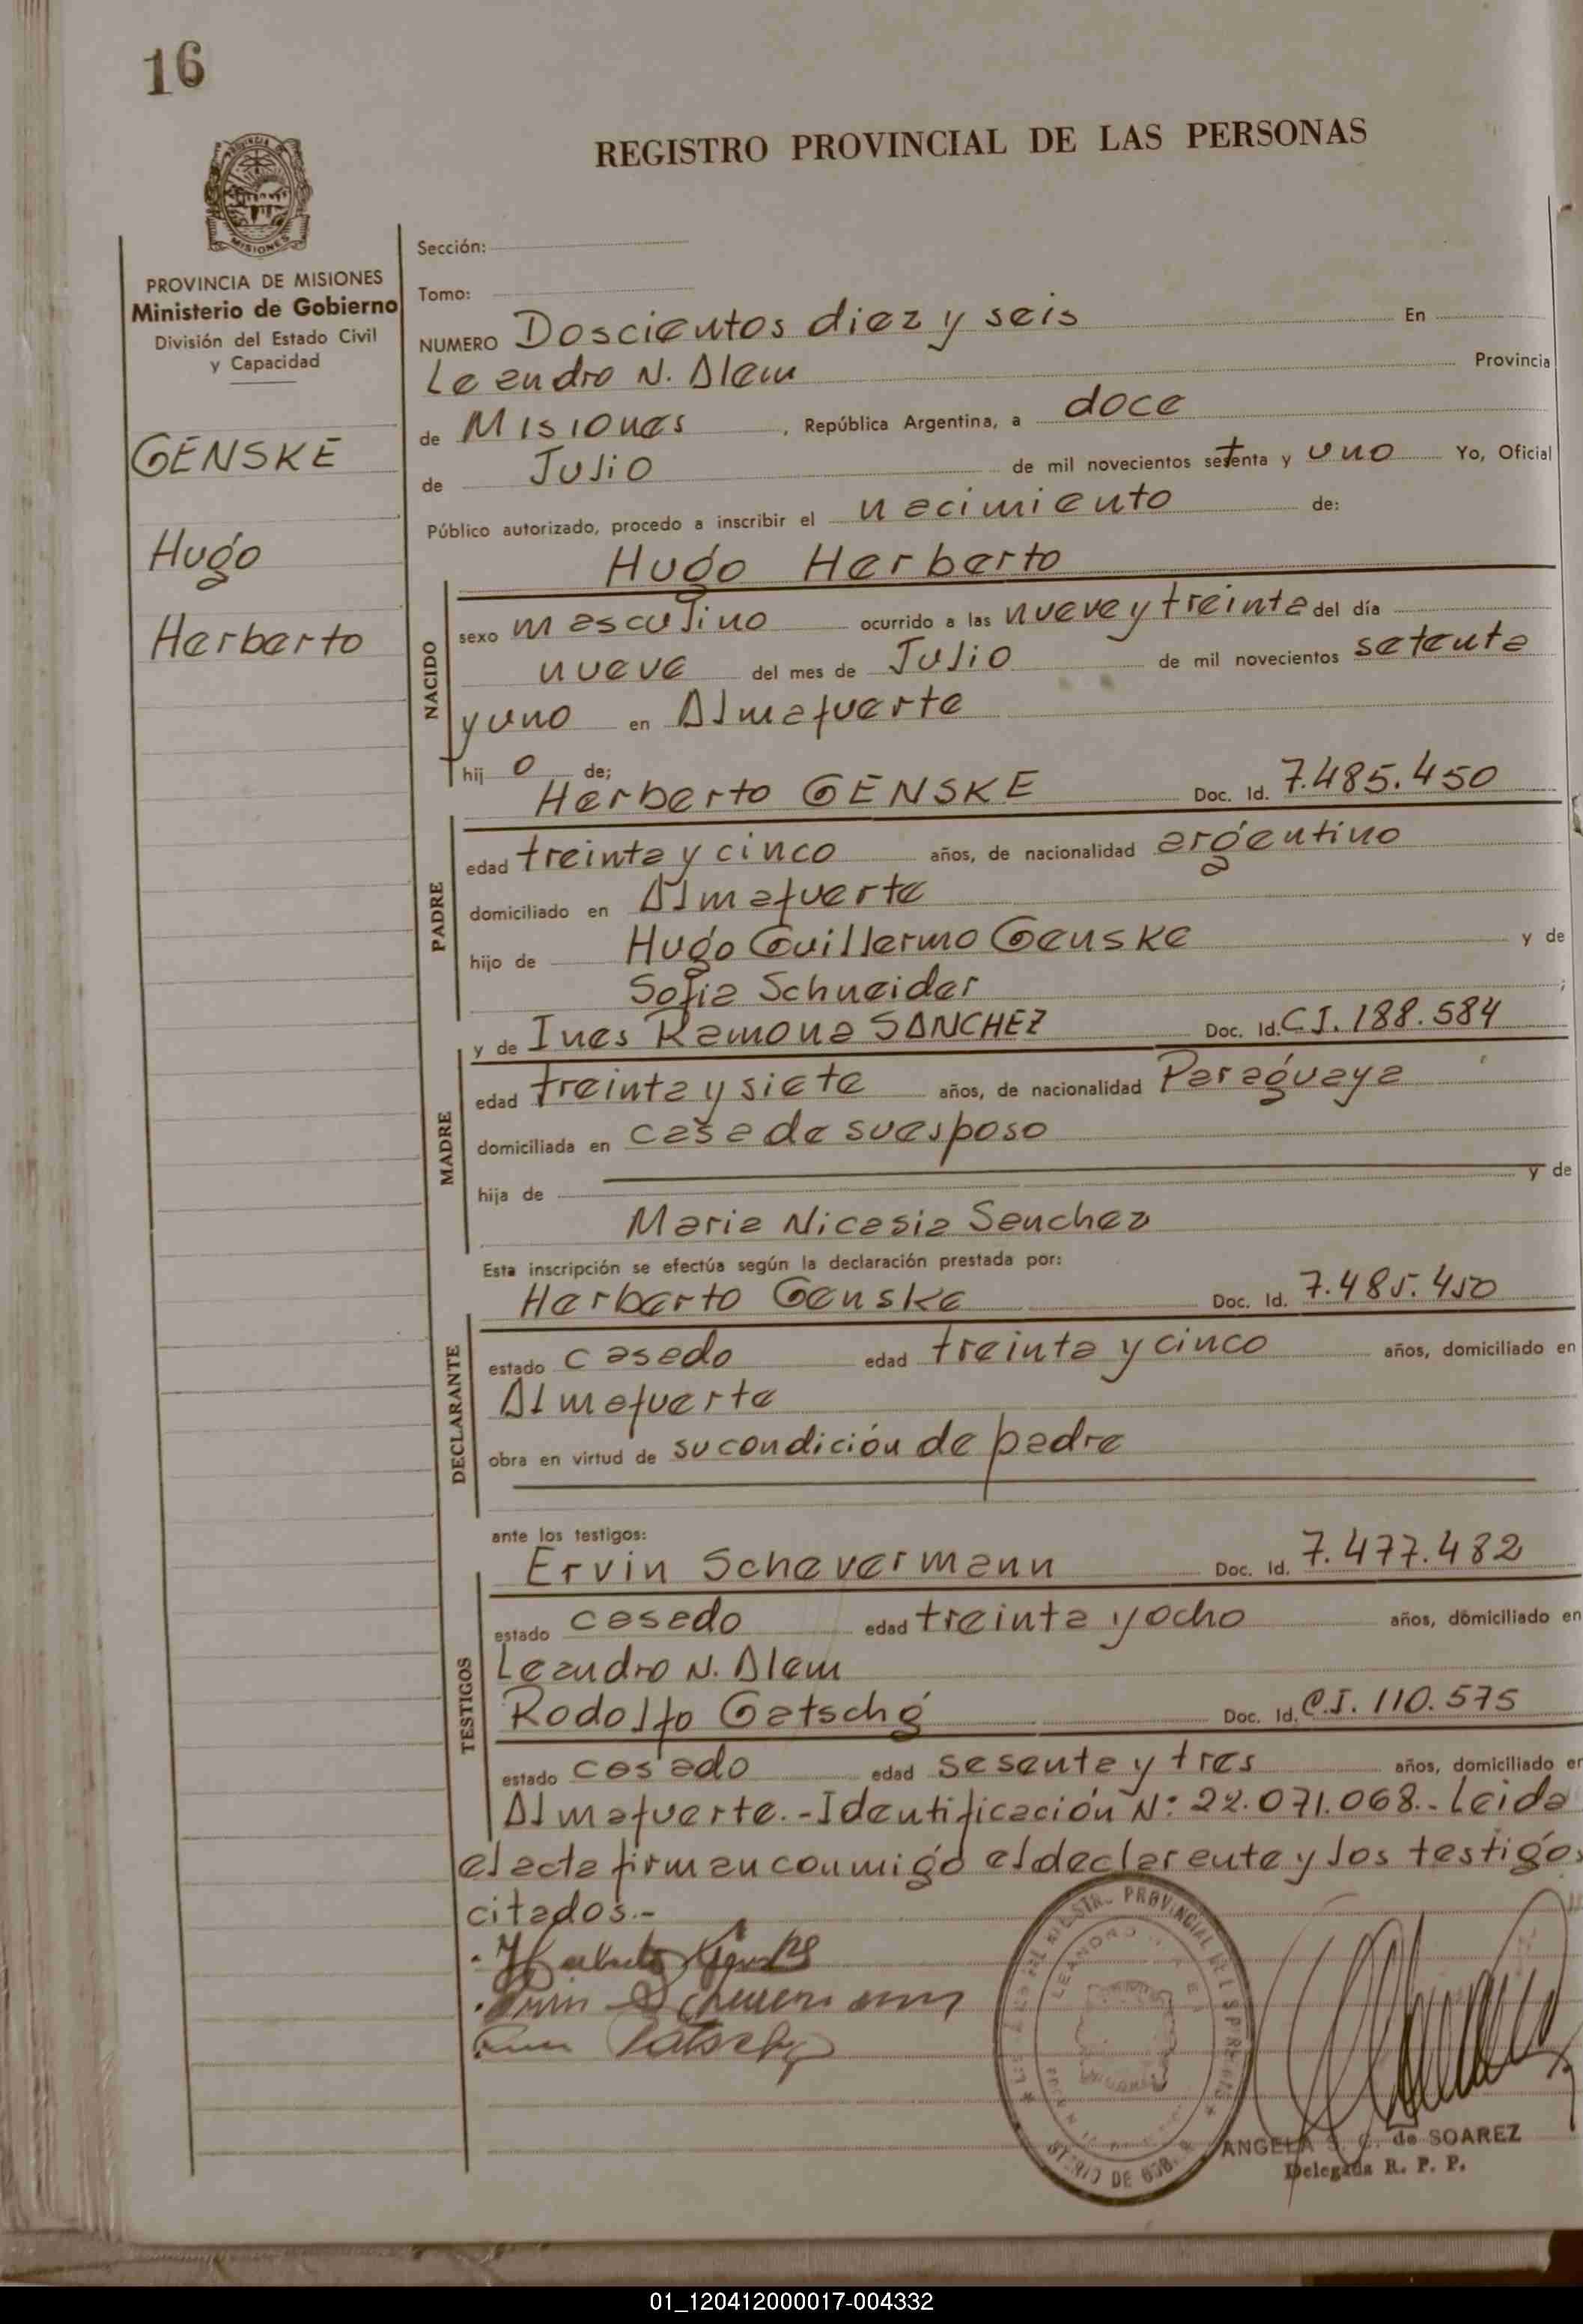 16
REGISTRO PROVINCIAL DE LAS PERSONAS
MISIONES
PROVINCIA DE MISIONES
Ministerio de Gobierno
División del Estado Civil
y Capacidad
GENSKE
Hugo
Herberto
Sección:
Tomo:
NUMERO Doscientos diez y seis En
Leandro N. Alem Provincia
de Misiones, República Argentina, a doce
de Julio de mil novecientos setenta y uno Yo, Oficial
Público autorizado, procedo a inscribir el nacimiento de:
Hugo Herberto
NACIDO
sexo masculino ocurrido a las nueve y treinta del día
nueve del mes de Julio de mil novecientos setenta
y uno en Almafuerte
hij o de;
Herberto GENSKE Doc. Id. 7.485.450
PADRE
edad treinta y cinco años, de nacionalidad argentino
domiciliado en Almafuerte
hijo de Hugo Guillermo Genske y de
Sofia Schneider ;
y de Ines Ramona SANCHEZ Doc. Id. C.I. 188.584
MADRE
edad treinta y siete años, de nacionalidad Paraguaya
domiciliada en casa de su esposo
hija de y de
Maria Nicasia Sanchez
Esta inscripción se efectúa según la declaración prestada por:
Herberto Genske Doc. Id. 7.485.450
DECLARANTE
estado casado edad treinta y cinco años, domiciliado en
Almafuerte
obra en virtud de su condición de padre
ante los testigos:
Ervin Schevermann Doc. Id. 7.477.482
TESTIGOS
estado casado edad treinta y ocho años, domiciliado en
Leandro N. Alem
Rodolfo Gatschg Doc. Id. C.I. 110.575
estado casado edad sesenta y tres años, domiciliado en
Almafuerte.-Identificación N: 22.071.068.- Leida
el acta firman conmigo el declarante y los testigos
citados.-
Herberto Genske
ANGELA S. C. de SOAREZ
Delegada R. P. P.
01_120412000017-004332